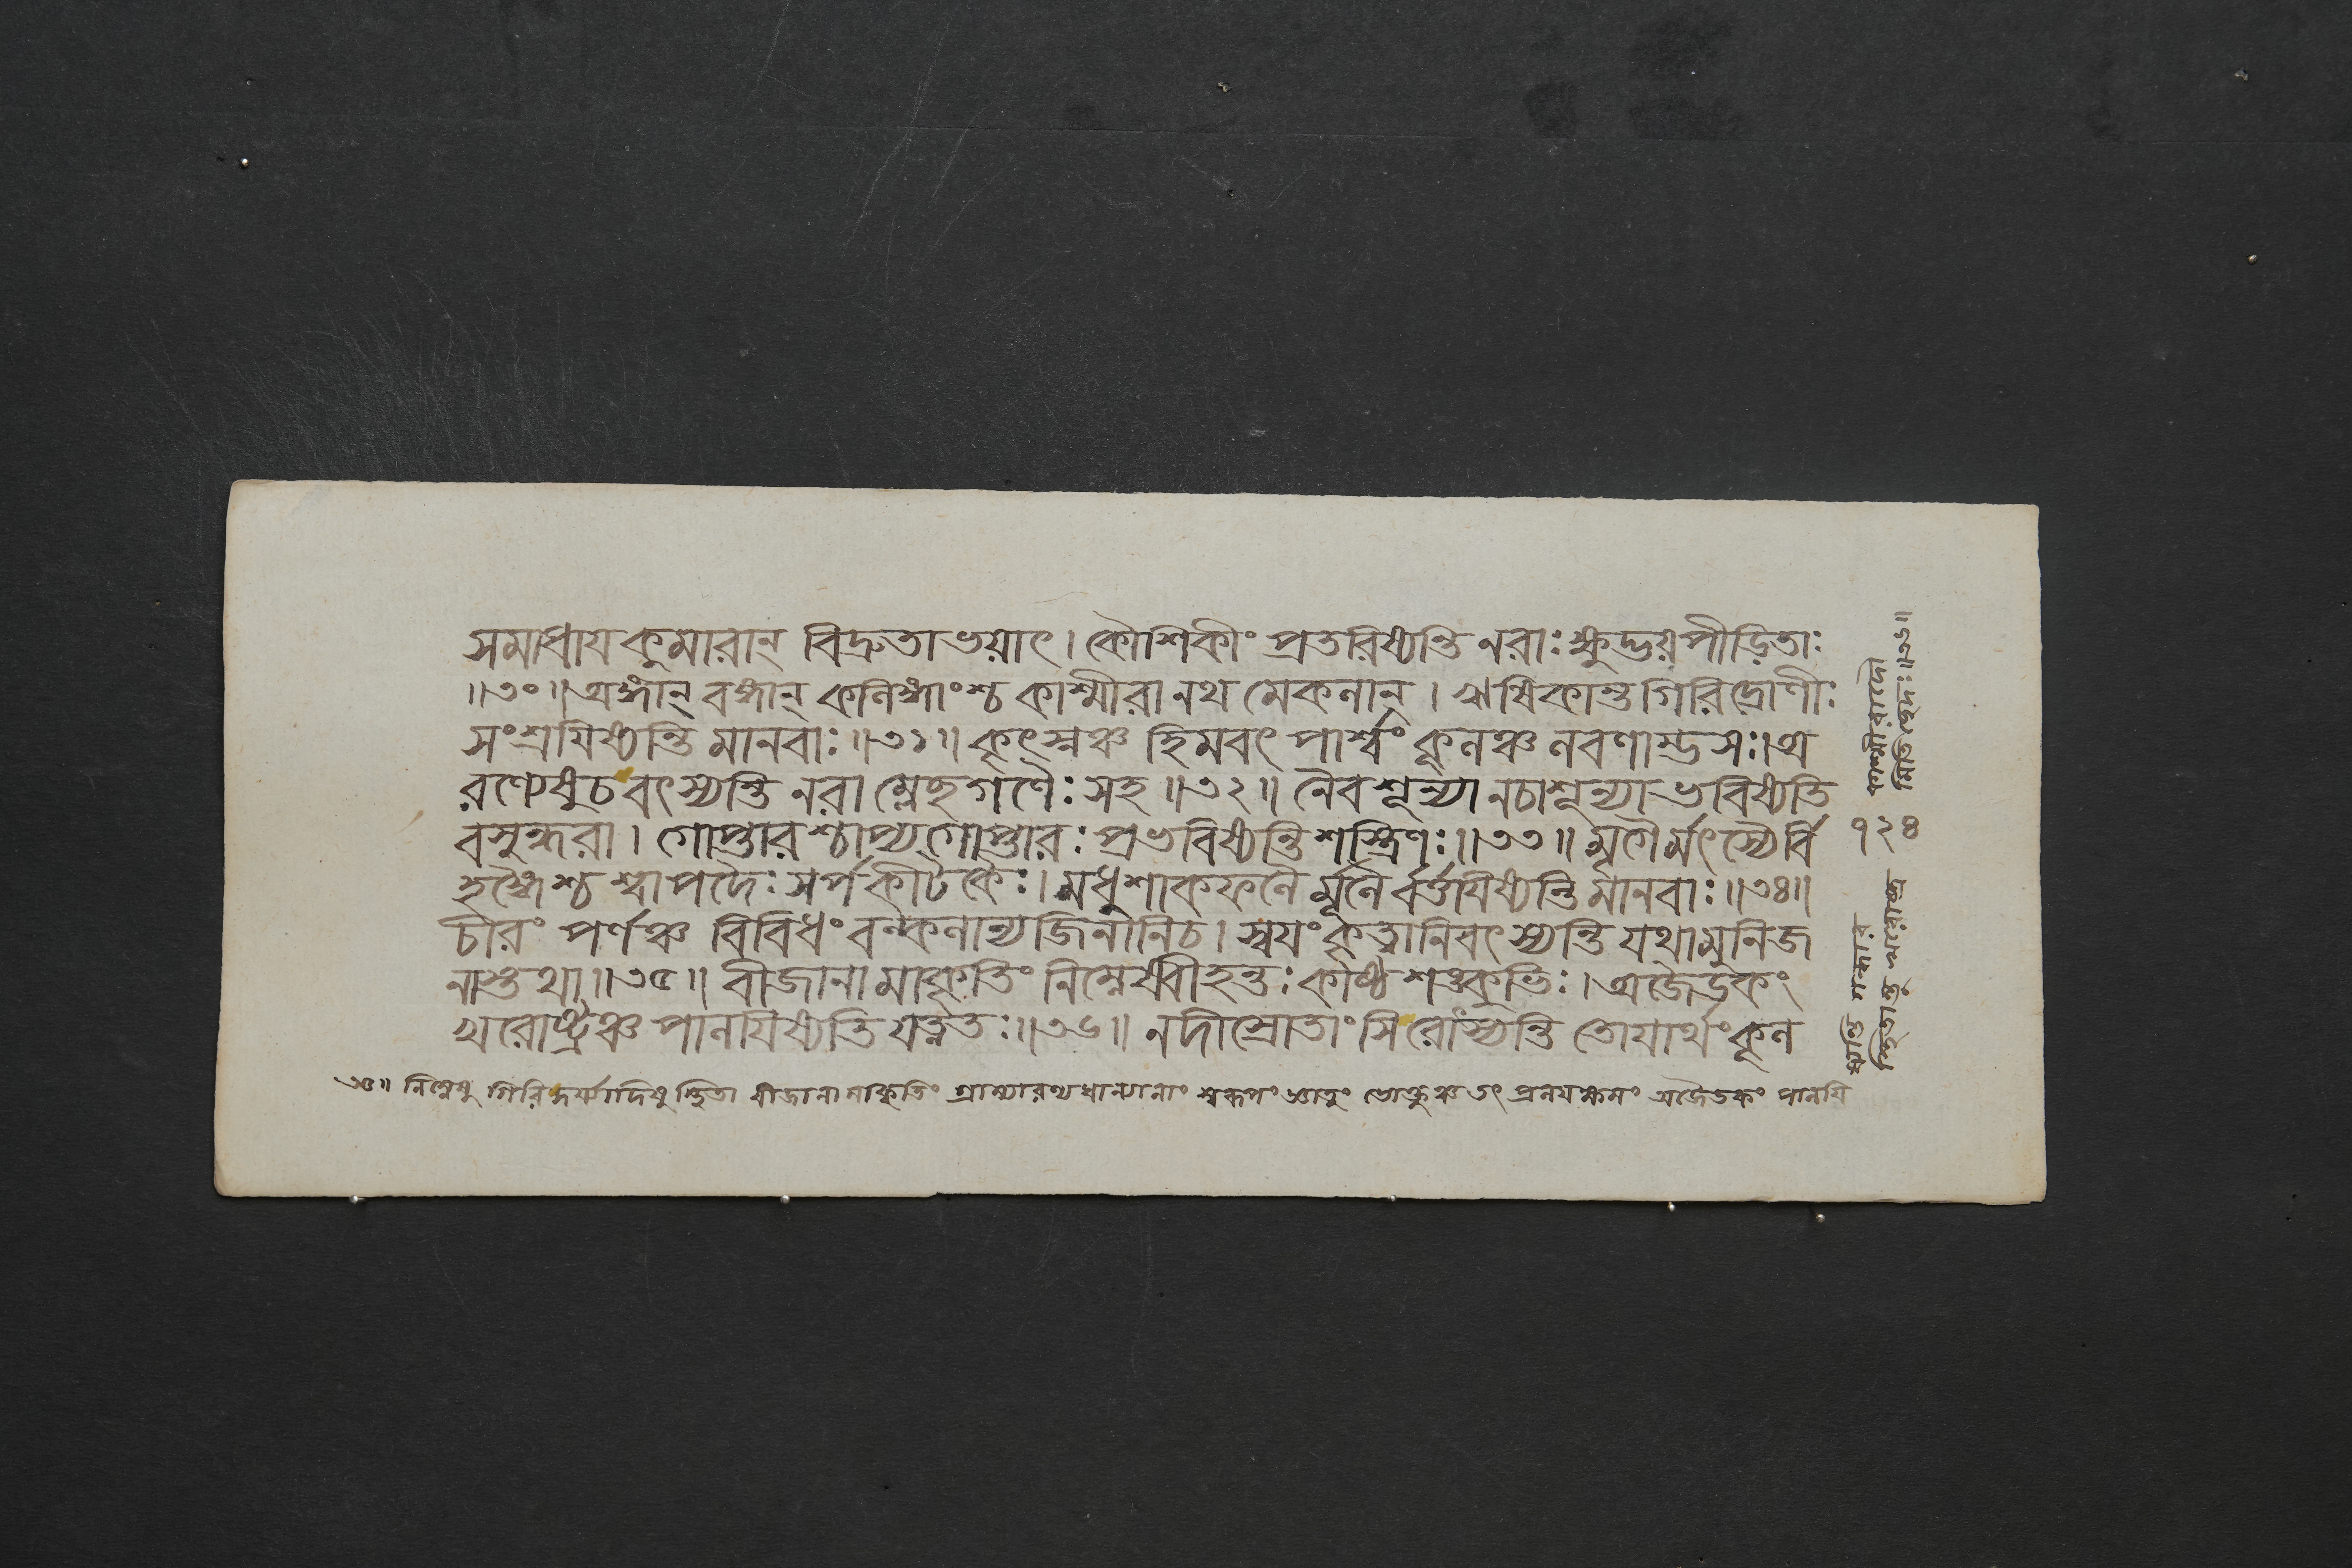 সমাধায কুমারান্ বিদ্রুতা ভয়াৎ। কৌশিকীং প্রতরিষ্যন্তি নরাঃ ক্ষুদ্ভয়পীড়িতাঃ
॥৩০॥ অঙ্গান্ বঙ্গান্ কলিঙ্গাংশ্চ কাশ্মীরানথ মেকলান্। ঋষিকান্তগিরিদ্রোণীঃ
সংশ্রযিষ্যন্তি মানবাঃ॥৩১॥ কৃৎস্নঞ্চ হিমবৎ পার্শ্বং কূলঞ্চ লবণাম্ভসঃ। অ
রণ্যেষু চ বৎস্যন্তি নরা ম্লেছগণৈঃ সহ॥৩২॥ নৈব শূন্যা নচাশূন্যা ভবিষ্যতি
বসুন্ধরা। গোপ্তারশ্চাপ্যগোপ্তারঃ প্রভবিষ্যন্তি শস্ত্রিণঃ॥৩৩॥ মৃগৈর্মৎস্যৈর্বি
হঙ্গৈশ্চ শ্বাপদৈঃ সর্পকীটকৈঃ। মধুশাকফলৈর্মূলৈর্বর্ত্তযিষ্যন্তি মানবাঃ॥৩৪॥
চীরং পর্ণঞ্চ বিবিধং বল্কলান্যজিনানি চ। স্বযংকৃত্বা নিবৎস্যন্তি যথা মুনিজ
নাস্তথা॥৩৫॥ বীজানামাকৃতিং নিম্নেষ্বীহন্তঃ কাষ্ঠশঙ্কুভিঃ। অজৈডকং
খরোষ্ট্রঞ্চ পালযিষ্যতি যত্নতঃ॥৩৬॥ নদীস্রোতাংসি রোৎস্যন্তি তোযার্থং কূল
নিম্নেষু গিরি স্থিতা বীজানামাকৃতিং গ্রাম্যারণ্যধান্যানাং স্বরূপং জ্ঞাতুং ভোক্তুঞ্চ তৎ অজৈডকং পালযি
১২৪